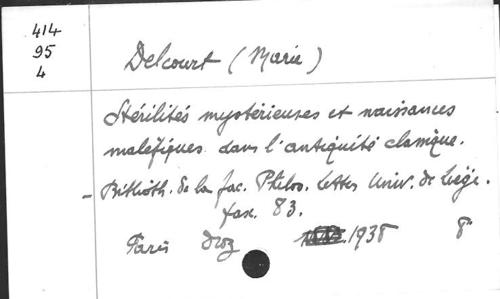 414
95
4
Delcourt (Marie)
Stérilités mystérieuses et naissances
maléfiques dans l'antiquité classique.
- Biblioth. de la fac. Philos. Lettres Univ. de Liège.
fasc. 83.
Paris Droz 1938 8°